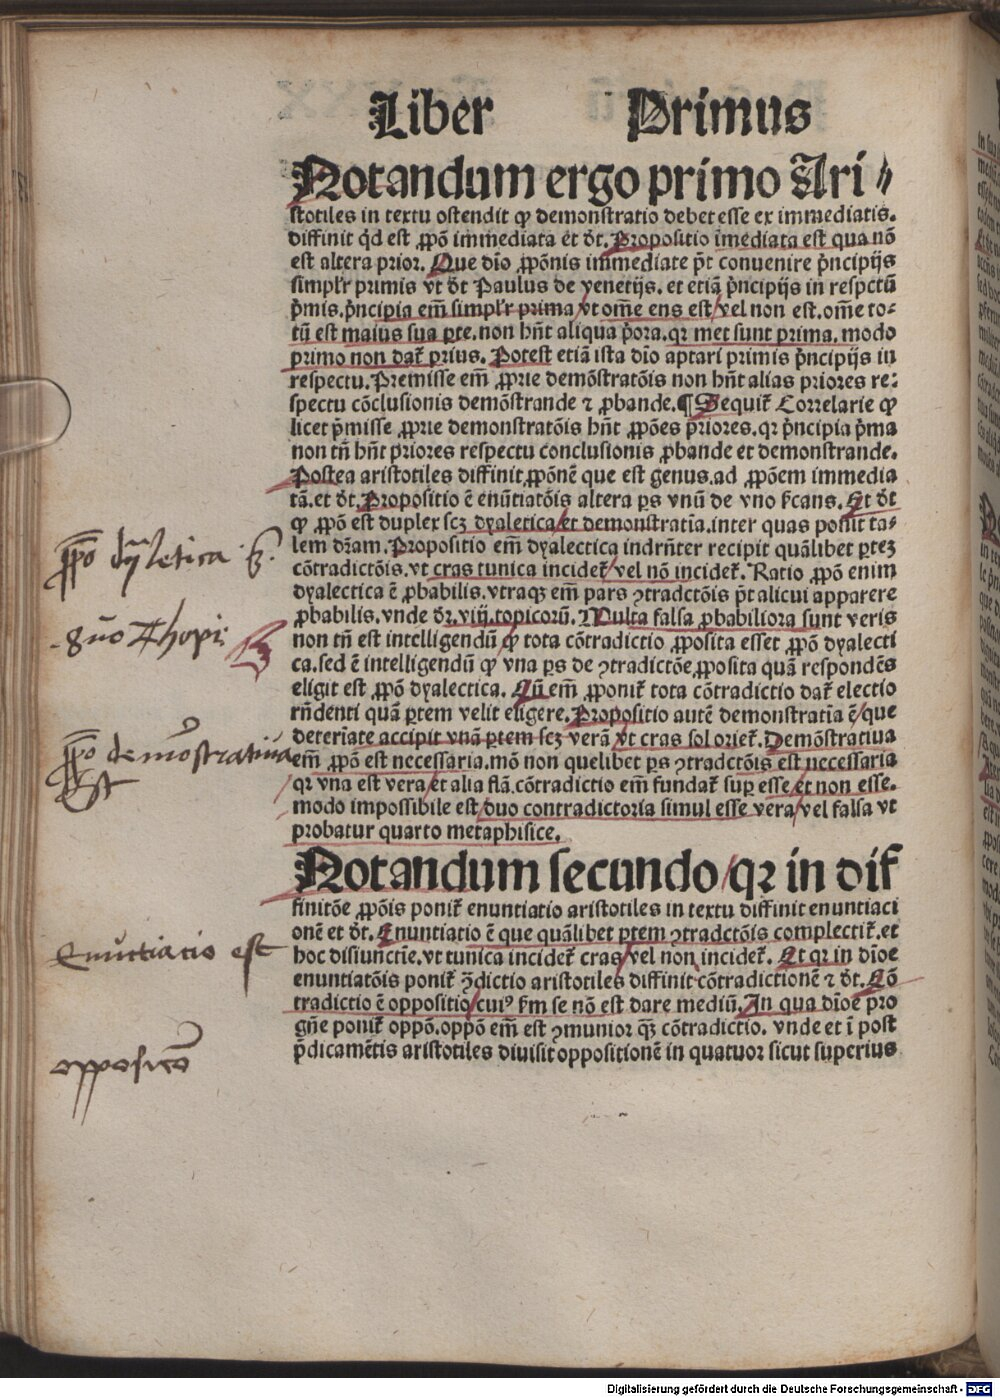 Liber Primus
Notandum ergo primo Ari⸗
stotiles in textu ostendit ꝙ demonstratio debet esse ex immediatis.
diffinit qd̓ est ꝓpō immediata et dr̄. Propositio īmediata est qua nō
est altera prior. Que dīo ꝓpōnis immediate pt̄ convenire pn̓cipijs
simplr̓ primis vt dt̄ Paulus de venetijs. et etiā pn̓cipijs in respctū
pm̓is. pn̓cipia em̄ simplr̓ prima / vt om̄e ens est / vel non est. om̄e to⸗
tū est maius sua ꝑte. non hn̄t aliqua pō̓ra. qꝛ met sunt prima. modo
primo non dat̄ prius. Potest etiā ista dīo aptari primis pn̓cipijs in
respectu. Premisse em̄ ꝓprie demōstratōis non hn̄t alias priores re⸗
spectu cōclusionis demōstrande ⁊ ꝓbande. ¶ Sequit̄ Correlarie ꝙ
licet pm̓isse ꝓprie demonstratōis hn̄t ꝓpōes priores. qꝛ pn̓cipia pm̓a
non tn̄ hn̄t priores respectu conclusionis ꝓbande et demonstrande.
Postea aristotiles diffinit ꝓpōnē que est genus. ad ꝓpōem immedia
tā. et dt̄. Propositio ē enūtiatōis altera ꝑs vnū de vno sc̄ans. Et dt̄
ꝙ ꝓpō est duplex scꝫ dyaletica / et demonstratīa. inter quas ponit ta⸗
lem dr̄am. Propositio em̄ dyalectica indrn̄ter recipit quālibet ꝑtez
cōtradictōis. vt cras tunica incidet̄ / vel nō incidet̄. Ratio ꝓpō enim
dyalectica ē ꝓbabilis. vtraqꝫ em̄ pars ꝯtradctōis pt̄ alicui apparere
ꝓbabilis. vnde dr̄. viij. topicorū. Multa falsa ꝓbabiliora sunt veris
non tn̄ est intelligendū ꝙ tota cōtradictio ꝓposita esset ꝓpō dyalecti
ca. sed ē intelligendū ꝙ vna ꝑs de ꝯtradictōe ꝓposita quā respondēs
eligit est ꝓpō dyalectica. Cū em̄ ꝓponit̄ tota cōtradictio dat̄ electio
rn̄denti quā ꝑtem velit eligere. Propositio autē demonstratīa ē / que
deterīate accipit vnā ꝑtem scꝫ verā / vt cras sol oriet̄. Demōstratiua
em̄ ꝓpō est necessaria. mō non quelibet ꝑs ꝯtradctōis est necessaria
qꝛ vna est vera / et alia fla̅. cōtradictio em̄ fundat̄ suꝑ esse / et non esse.
modo impossibile est / duo contradictoria simul esse vera / vel falsa vt
probatur quarto metaphisice.
Notandum secundo / qꝛ in dif
finitōe ꝓpōis ponit̄ enuntiatio aristotiles in textu diffinit enuntiaci
onē et dt̄. Enuntiatio ē que quālibet ꝑtem ꝯtradctōis complectit̄. et
hoc disiunctīe. vt tunica incidet̄ cras / vel non incidet̄. Et qꝛ in dīoe
enuntiatōis ponit̄ ꝯ̄dictio aristotiles diffinit cōtradictionē ⁊ dt̄. Cō
tradictio ē oppositio / cuiꝰ sm̄ se nō est dare mediū. In qua dīoe pro
gn̄e ponit̄ oppō. oppō em̄ est ꝯmunior qꝫ cōtradictio. vnde et ī post
pd̓icamētis aristotiles diuisit oppositionē in quatuor sicut superius
ꝓpō dyaletica
ꝓpō demōstratiua
Est
Enūctiatio est
opposicō
Digitalisierung gefördert durch die Deutsche Forschungsgemeinschaft - DFG